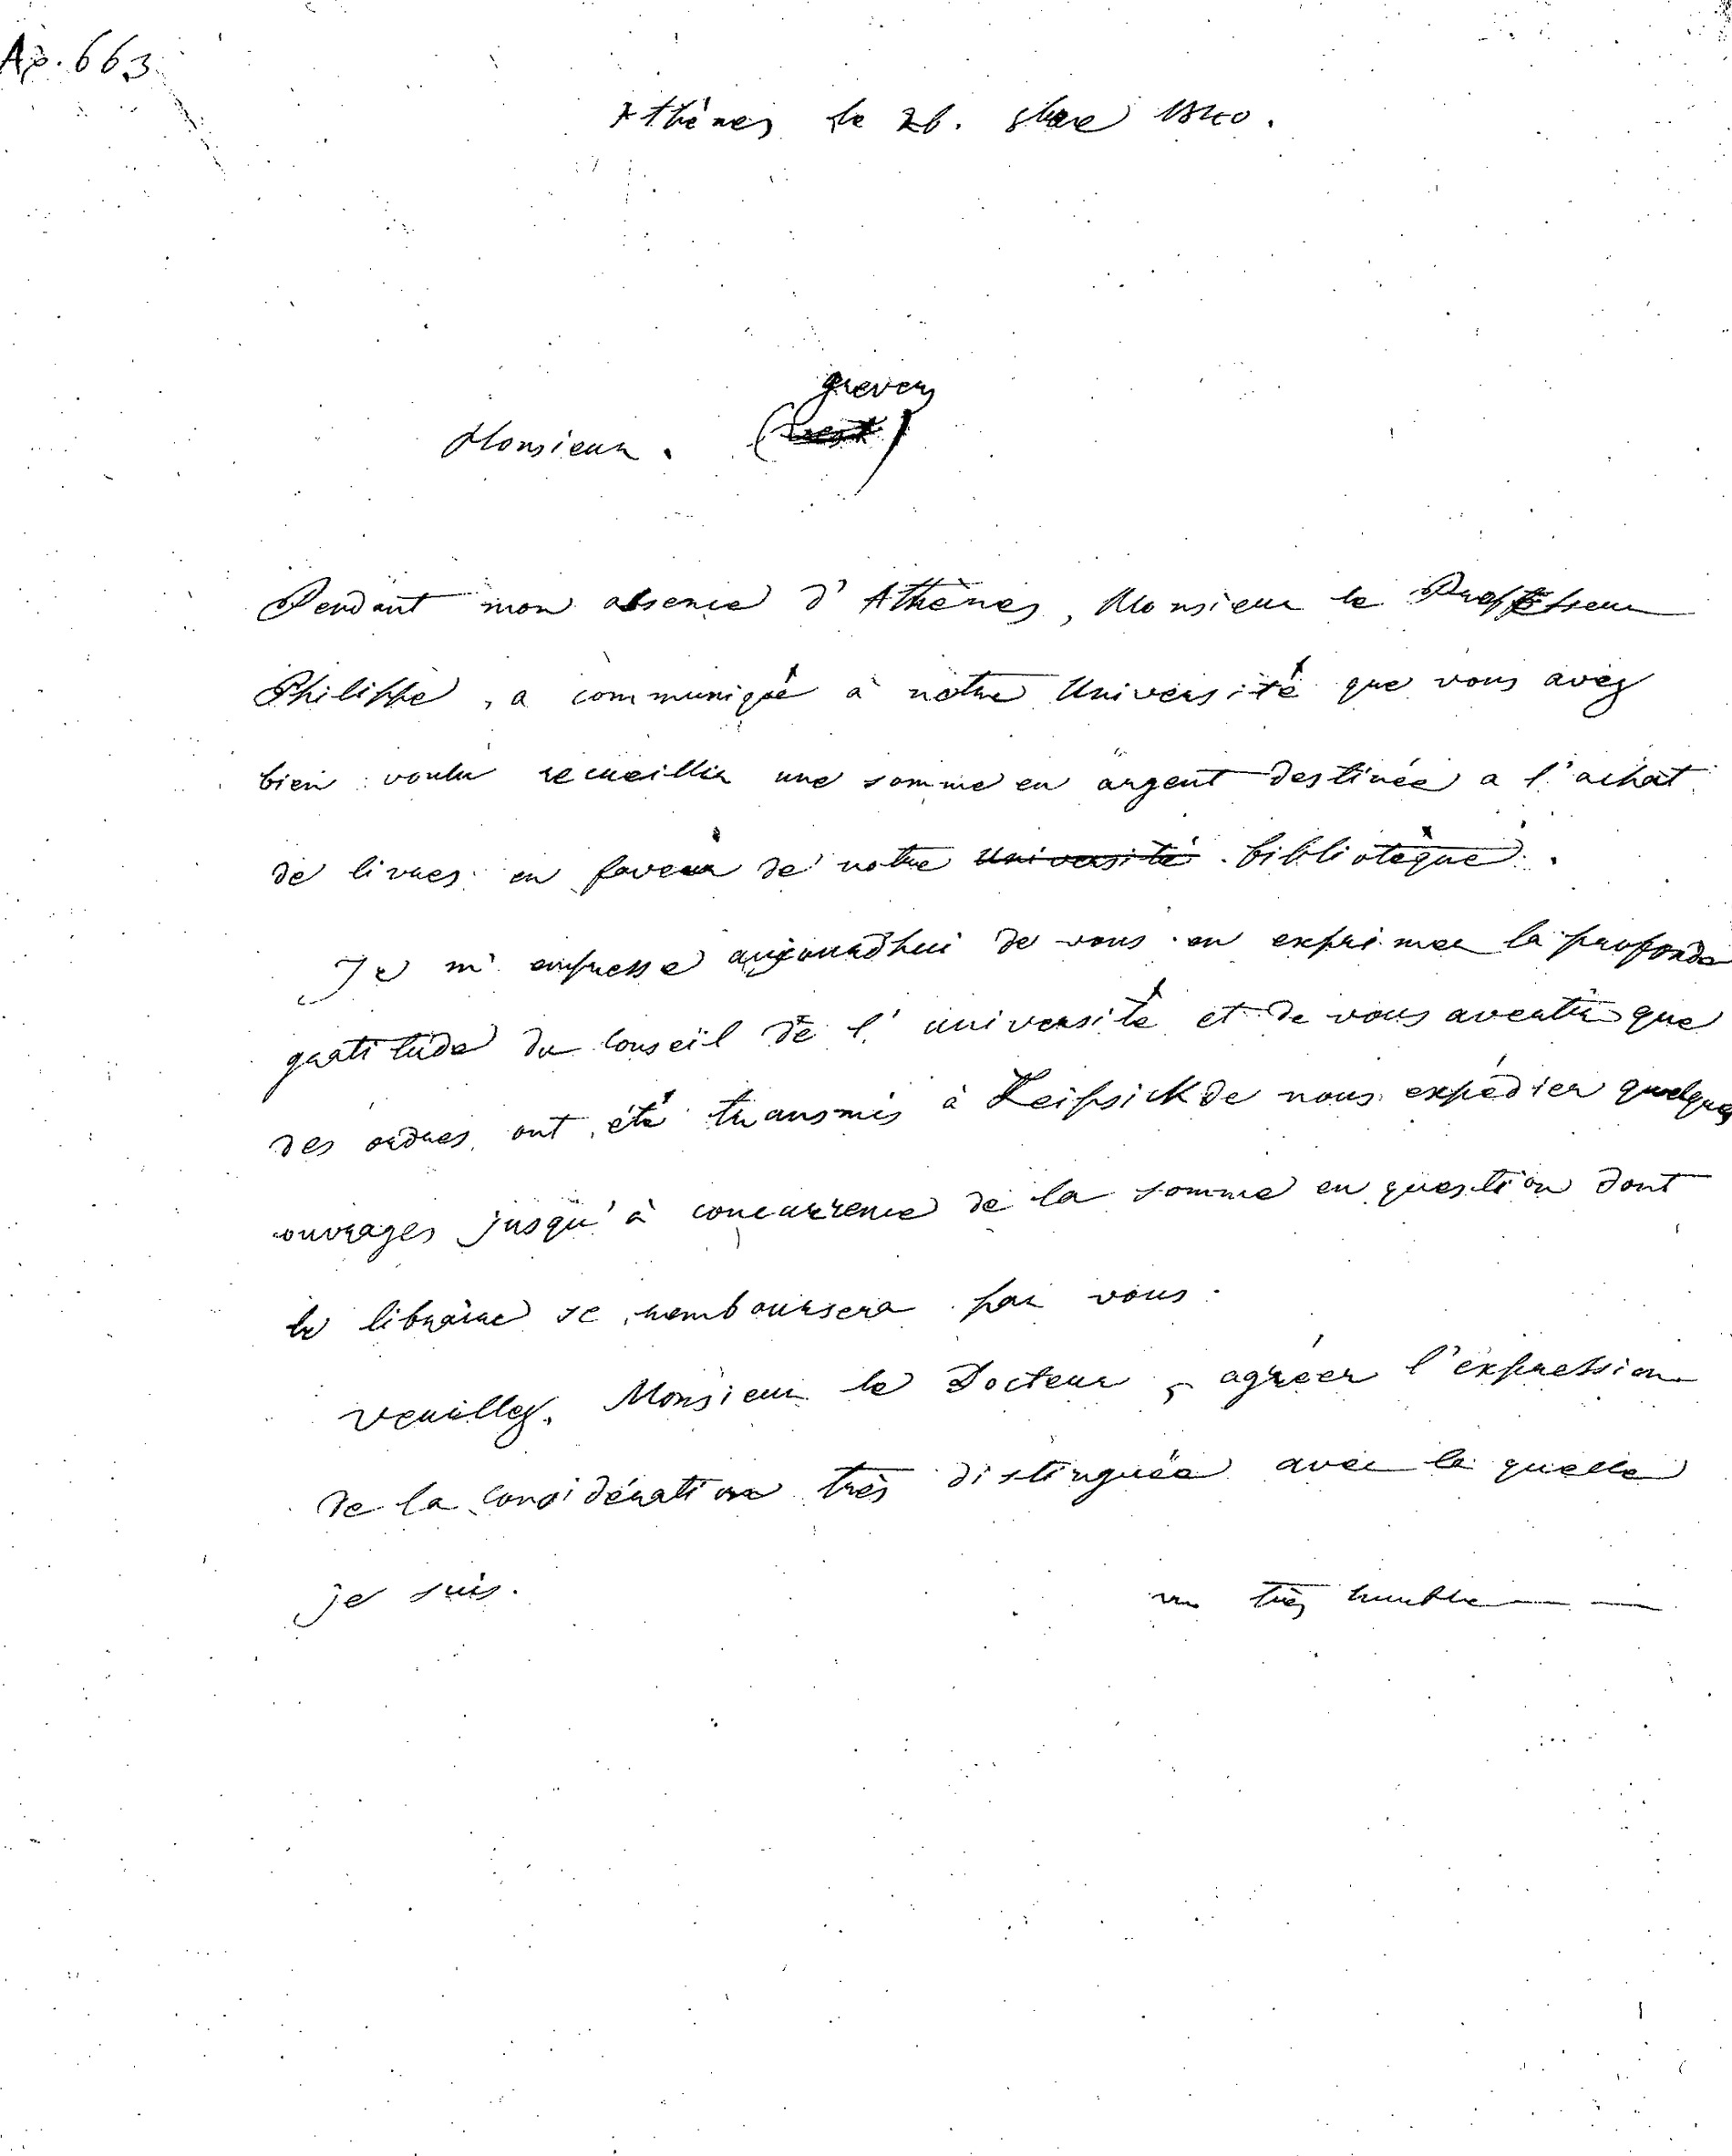 Αρ. 663
Athènes le 26. 8bre 1840.
grevers
Monsieur.
Pendant mon absence d'Athènes, Monsieur le Professeur
Philippe, a communiqué à notre Université que vous avez
bien voulu recueillir une somme en argent destinée a l'achat
de livres en faveur de notre Université bibliotèque.
Je m'empresse aujourd'hui de vous en exprimer la profonde
gratitude du Conseil de l'université et de vous avertir que
des ordres ont été transmis à Leipsick de nous expédier quelques
ouvrages jusqu'à concurrence de la somme en question dont
le libraire se remboursera par vous.
Veuillez, Monsieur le Docteur, agréer l'expression
de la considération très distinguée avec la quelle
je suis.
très humble